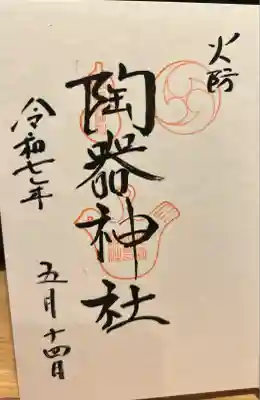 火防
陶器神社
令和七年
五月十四日